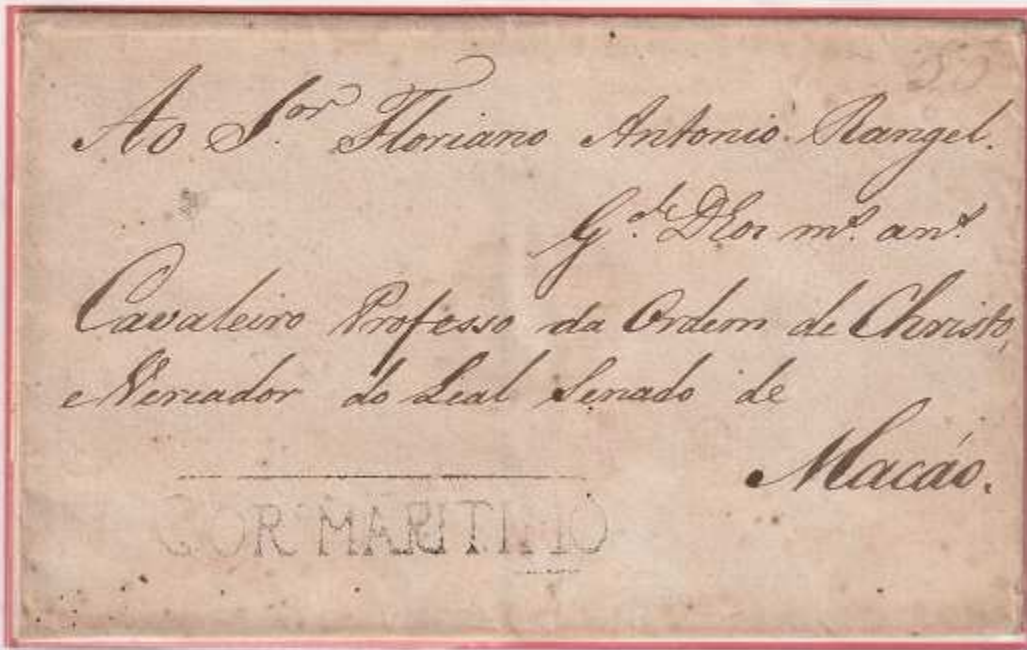 50
Ao S.or Floriano Antonio Rangel.
G.de Deos m.s an.s
Cavaleiro Professo da Ordem de Christo,
e Vereador do Leal Senado de
Macáo.
COR MARITIMO